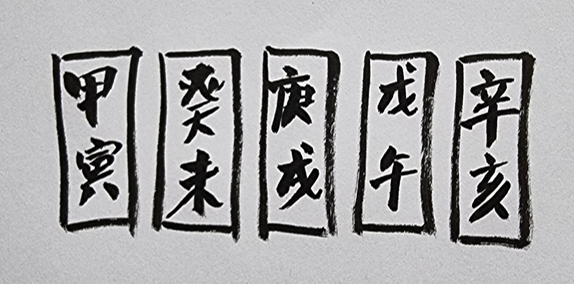 甲寅
癸未
庚戌
戊午
辛亥